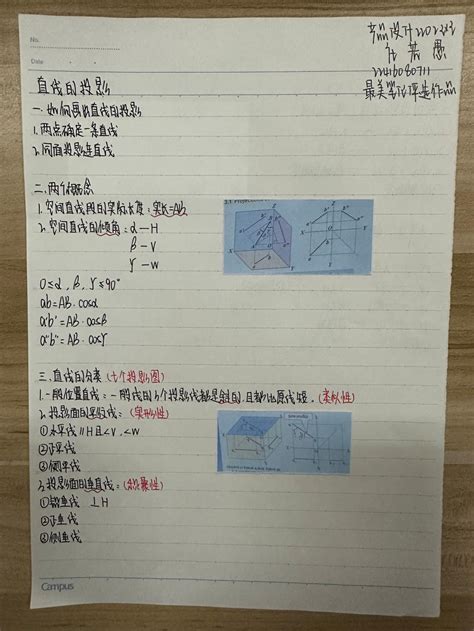 No.
Date
产品设计2202班
任若愚
22416080711
最美笔记评选作品
直线的投影
一.如何画出直线的投影
1.两点确定一条直线
2.同面投影连直线
二.两个概念
1.空间直线段的实际长度:实长=AB
2.空间直线的倾角:α—H
β—V
γ—W
0≤α,β,γ≤90°
ab=AB·cosα
a'b'=AB·cosβ
a"b"=AB·cosγ
三.直线的分类(七个投影图)
1.一般位置直线:一般线的3个投影线都是斜的,且都比原线短.(类似性)
2.投影面的平行线:(实形性)
①水平线 //H且∠V,∠W
②正平线
③侧平线
3.投影面的垂直线:(积聚性)
①铅垂线 ⊥H
②正垂线
③侧垂线
Campus